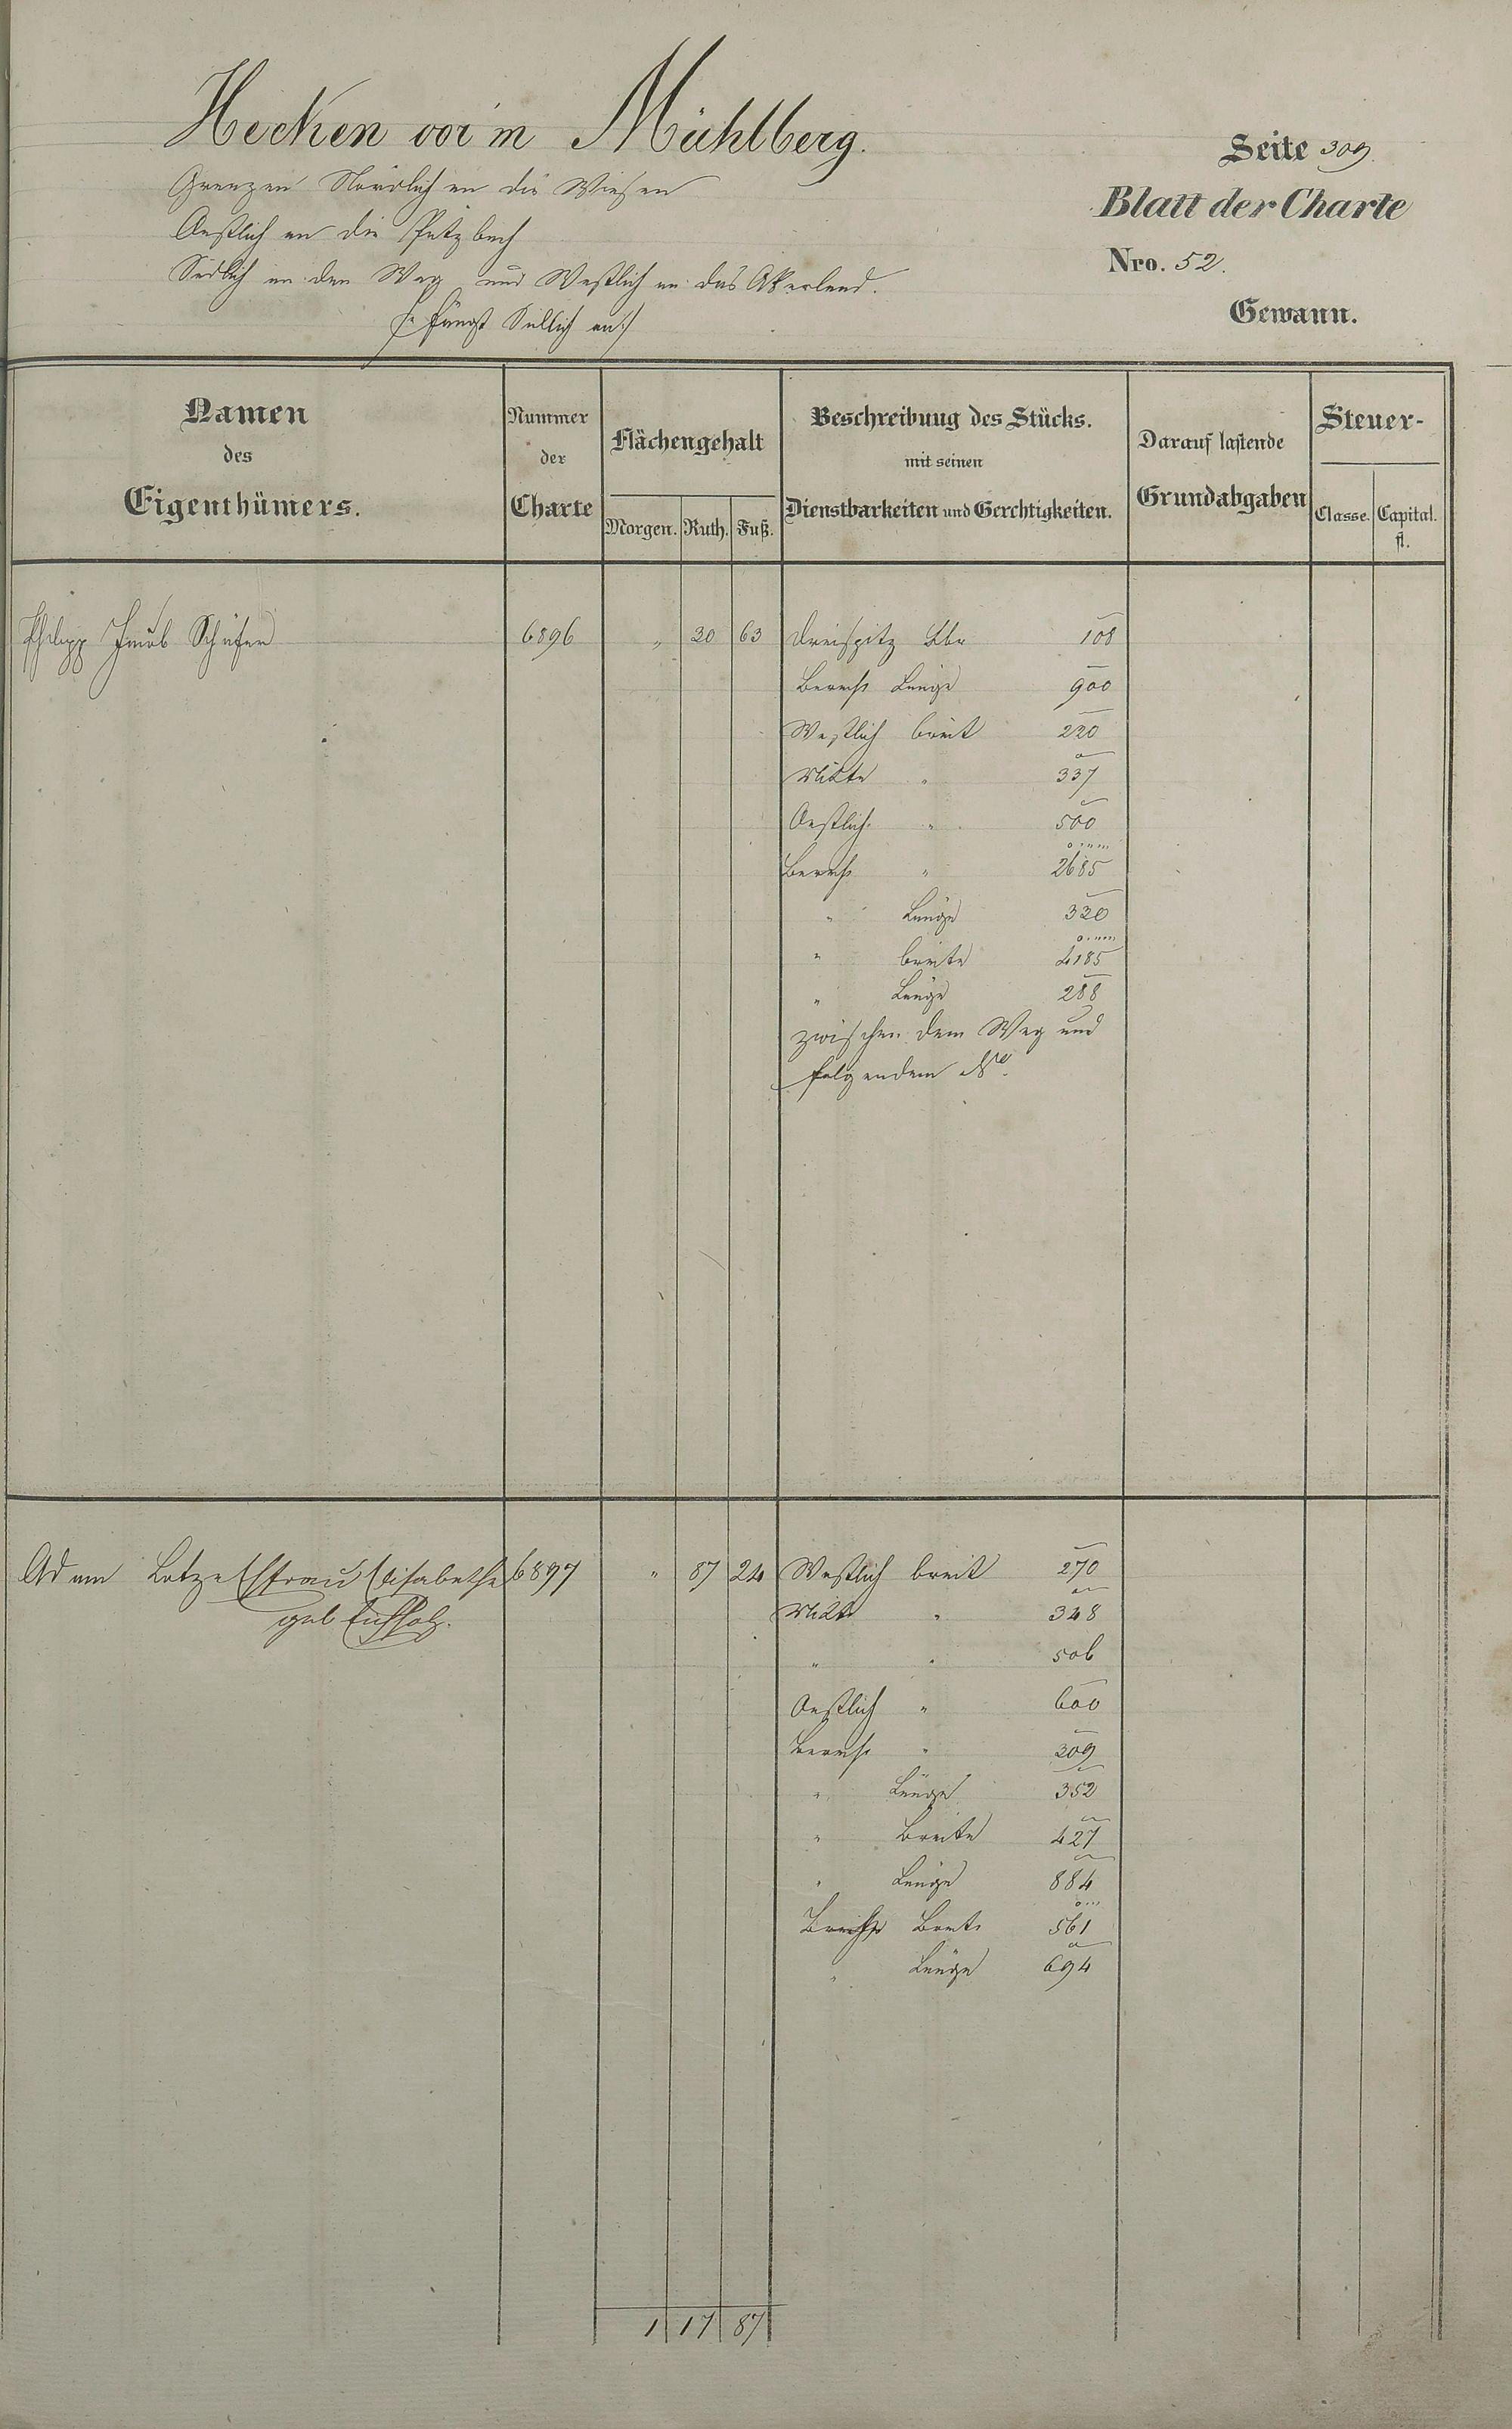 Hecken vor'm Mühlberg.
Grenzen Nördlich an die Wiesen
Oestlich an die Putzbach
Südlich an den Weg und Westlich an das Akerland.
/: fängt Südlich an :/
Seite 309.
Blatt der Charte
Nro. 52.
Gewann.
Namen des Eigenthümers.
Nummer der Charte
Flächengehalt
Morgen. Ruth. Fuß.
Beschreibung des Stücks.
mit seinen
Dienstbarkeiten und Gerechtigkeiten.
Darauf lastende
Grundabgaben
Steuer-
Classe. Capital.
fl.
Philipp Jacob Schäfer 6896 " 30 63 Dreispitz 108
Länge 900
Westlich breit 220
Mitte " 337
Oestlich " 500
" 2685
" Länge 320
" breite 4185
" Länge 288
zwischen dem Weg und
folgendem No.
Adam Lotz Ehefrau Elisabetha 6897 " 87 24 Westlich breit 270
geb Eichholz.
Mitte " 348
" " 506
Oestlich " 600
" 309
" Länge 352
" Breite 427
" Länge 884
Breite 561
" Länge 694
1 17 87